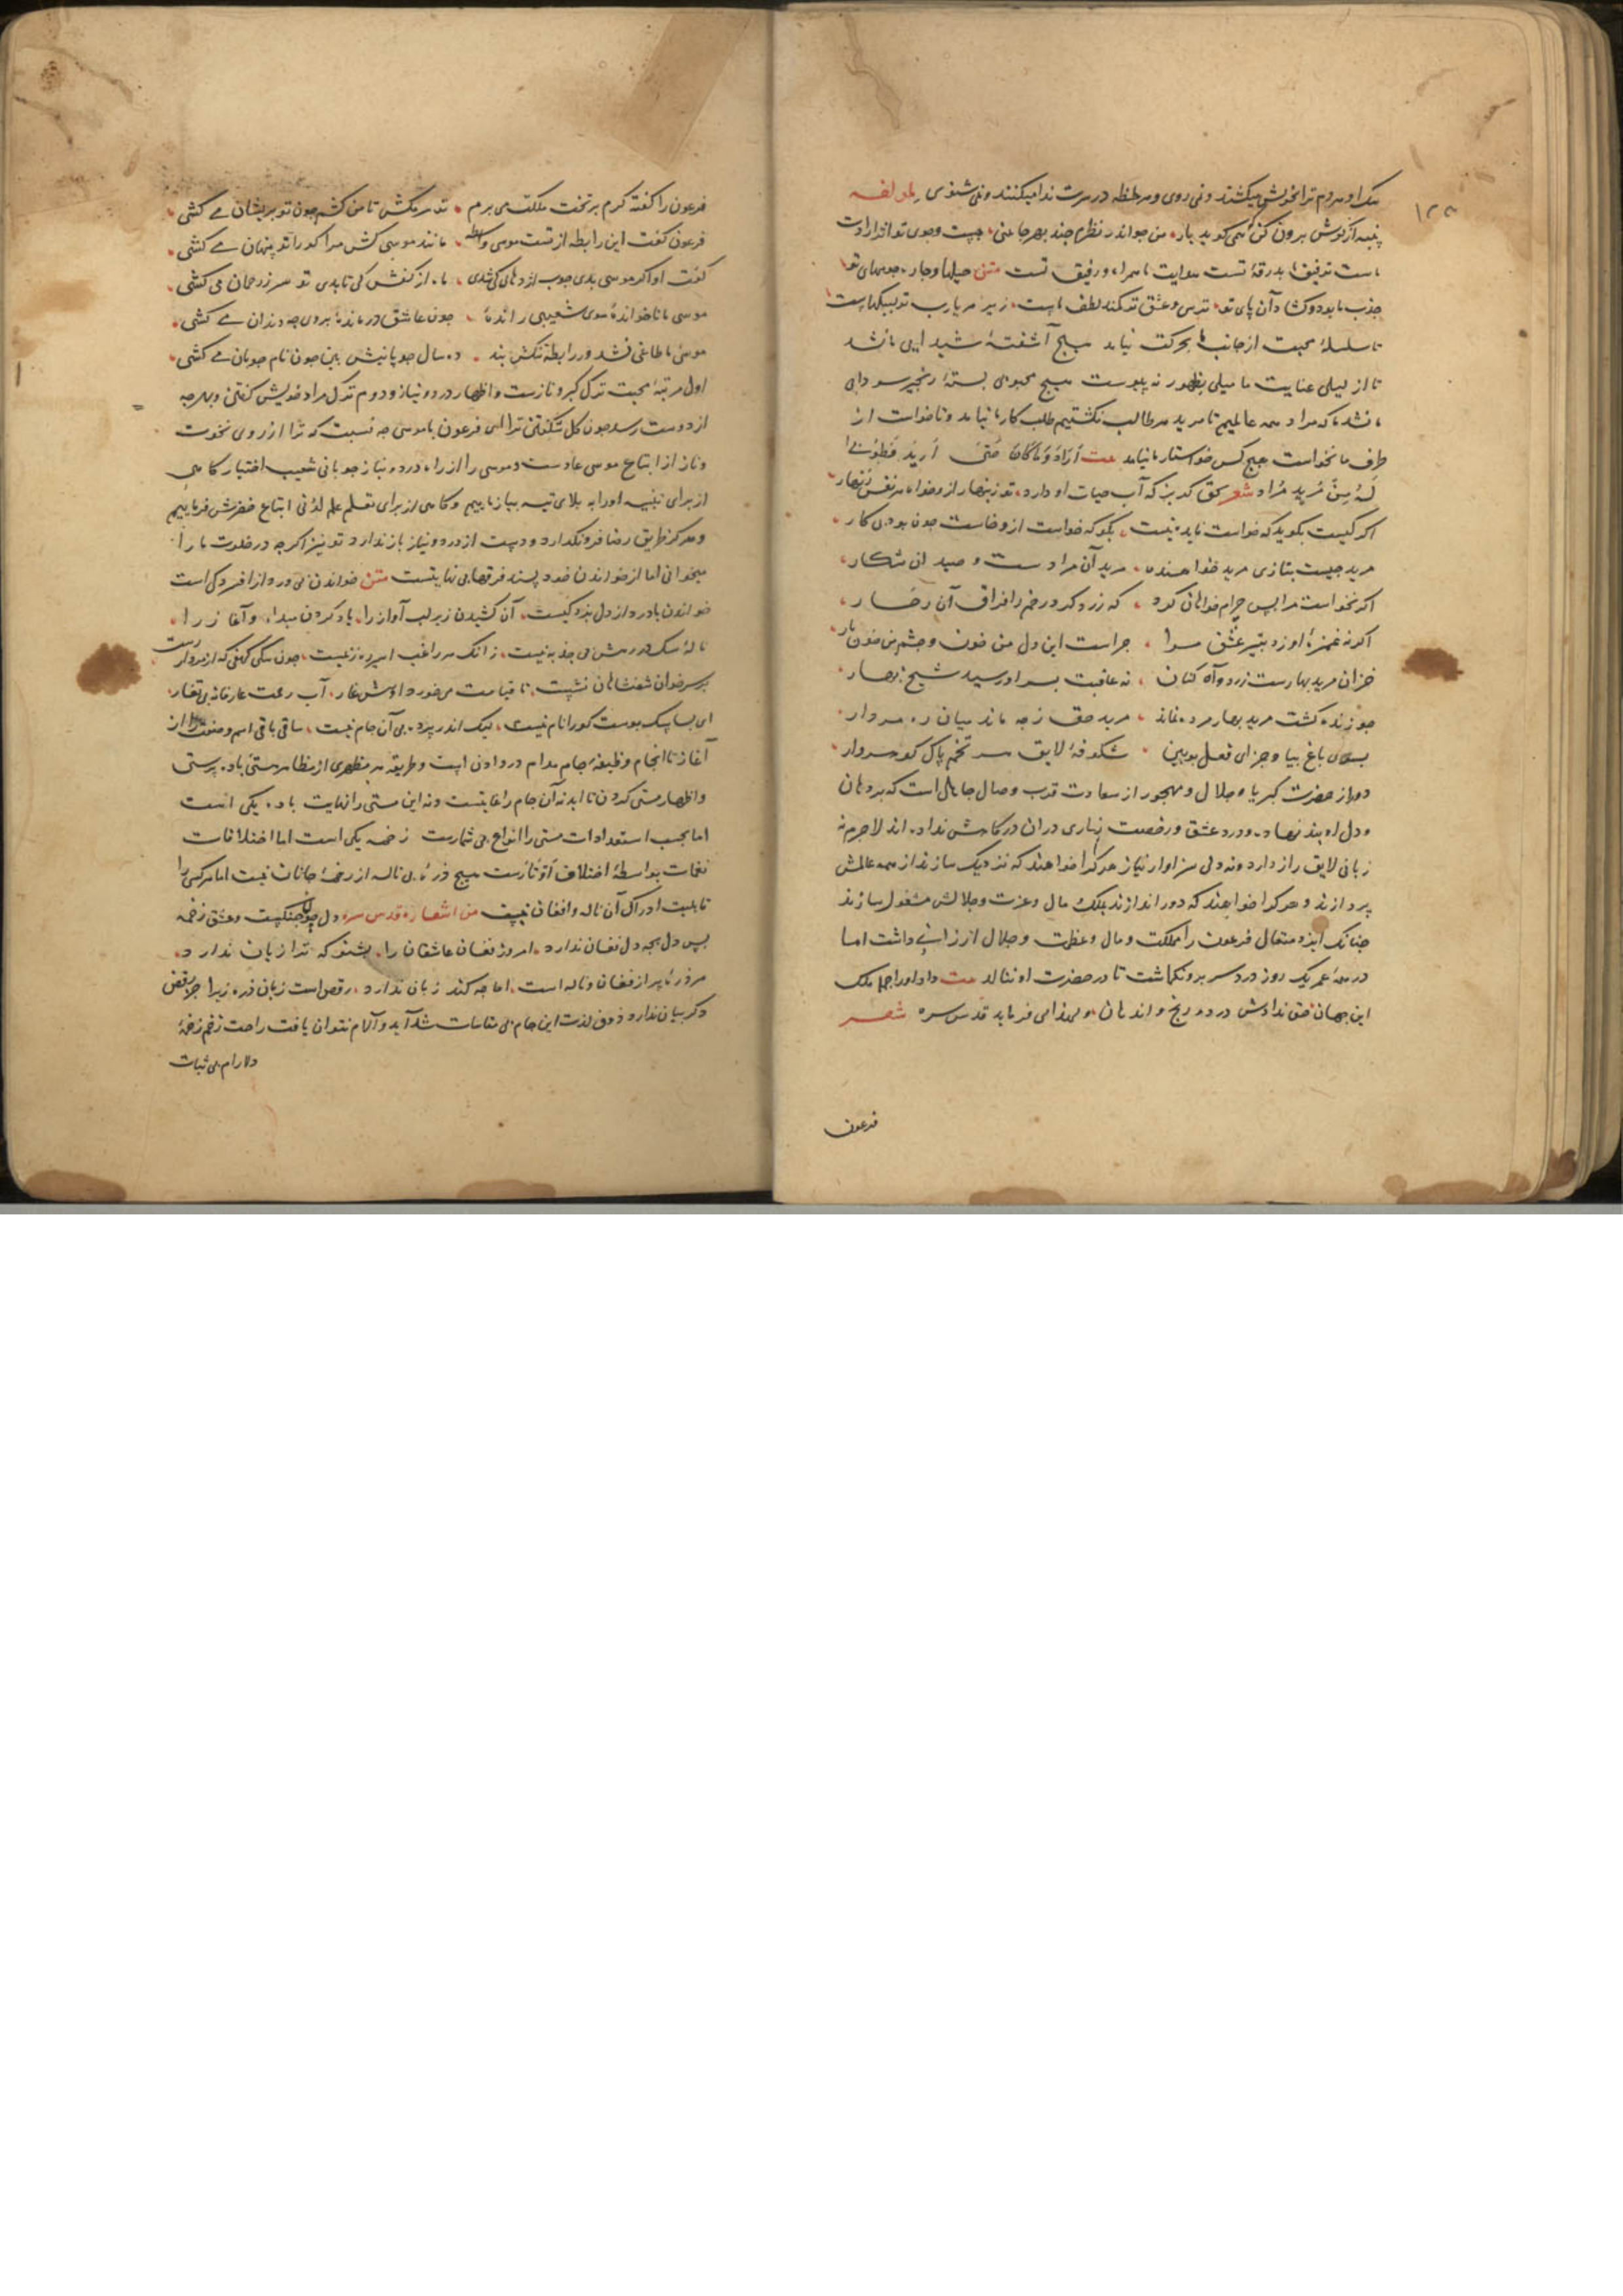 یک او مردم ترا بخویش میکشند و نمی روی و هر لحظه در سرت ندا میکنند و نمی شنوی لمؤلفه
پنبه از گوش برون کن که همی گوید یار من جو اندر نظرم چند بهر جا نگری
ماست توفیق ما بدرقهٔ تست هدایت ما همراه و رفیق تست متن حیلها و چاره جوییهای تو
جذب ما بود و گشاد آن پای تو ترس و عشق تو کمند لطف ماست زیر هر یارب تو لبیکهاست
تا سلسلهٔ محبت از جانب ما بحرکت نیاید هیچ آشفتهٔ شیدایی ما نشد
تا از لیلی عنایت ما میلی بظهور نه پیوست هیچ مجنون بستهٔ زنجیر سودای
ما نشد ما که مراد همه عالمیم تا مرید هر طالب نگشتیم طلب کار ما نیامد و تا خواست از
طرف ما نخواست هیچ کس خواستار ما نیامد
لَهُ مِنْ مُرِید مُراد شعر بحق که آب حیات او دارد تو زینهار ازو خواه هر نفس زنهار
اگر کسیت بگوید که خواست فایده نیست بگو که خواست ازو خاست چون بود بی کار
مرید چیست بتازی مرید خواهنده مرید آن مرادست و صید آن شکار
اگر نخواست مرا پس چرام خواهان کرد که زرد کرد رخم را فراق آن رخسار
اگر نه غمزهٔ او زد بتیر عشق مرا چراست این دل من خون و چشم من خون بار
خزان مرید بهارست زرد و آه کنان نه عاقبت بسر او رسید شیخ بهار
چو زنده گشت مرید بهار مرده نماند مرید حق ز چه ماند میان ره مردار
بسوی باغ بیا و جزای فعل ببین شکوفهٔ لایق هر تخم پاک کو مردار
دور از حضرت کبریا و جلال و مهجور از سعادت قرب و وصال جاهل است که بر دهان
و دل او بند نهاده و درد عشق و رخصت زاری در آن درگاهش نداده اند لاجرم نه
زبانی لایق راز دارد و نه دلی سزاوار نیاز هر کرا خواهند که نزدیک سازند از همه عالمش
بپردازند و هر کرا خواهند که دور اندازند بملک و مال و عزت و جلالش مشغول سازند
چنانک ایزد متعال فرعون را مملکت و مال و عظمت و جلال ارزانی داشت اما
در همه عمر یک روز درد سر برو نگماشت تا در حضرت او ننالد بیت داد او را جمله ملک
این جهان حق ندادش درد و رنج و اندهان مولوی می فرماید قدس سره شعر
فرعون
فرعون را گفته کرم بر تخت ملکت می برم تو سر مکش تا من کشم چون تو پریشان می کشی
فرعون گفت این رابطه از تست موسی واسطه مانند موسی کش مرا کو را تو پنهان می کشی
گفت او اگر موسی بدی چوب اژدهای کی شدی ماه از کفش کی تابدی تو سر ز رحمان می کشی
موسی ما ناخوانده سوی شعیبی رانده چون عاشقی درمانده بر وی چه دندان می کشی
موسی ما طاغی نشد ور رابطه ننگش نبد ده سال چوپانیش بین چون نام چوپان می کشی
اول مرتبهٔ محبت ترک کبر و نازست و اظهار درد و نیاز و دوم ترک مراد خویش گفتن و بهرچه
از دوست رسد چون گل شکفتن ترا ای فرعون با موسی چه نسبت که ترا از روی نخوت
و ناز از اتباع موسی عارست و موسی را از راه درد و نیاز چوپانی شعیب اختیار گاهی
از برای تنبیه او را به بلای تیه بیازماییم و گاهی از برای تعلم علم لدنی اتباع خضرش فرماییم
و هرگز طریق رضا فرونگذارد و دست از درد و نیاز باز ندارد تو نیز اگرچه در خلوت ما را
میخوانی اما از خواندن خود پسند فرقها بی نهایتست متن خواندن بی درد از افسردگی است
خواندن با درد از دل بردگیست آن کشیدن زیر لب آواز را یاد کردن مبدا و آغاز را
نالهٔ سگ در رهش بی جذبه نیست زانک هر راغب اسیر ره زنیست چون سگ کهفی که از مردار رست
بر سر خوان شهنشاهان نشست تا قیامت می خورد او پیش غار آب رحمت عارفانه بی تغار
ای بسا سگ پوست کو را نام نیست لیک اندر پرده بی آن جام نیست ساقی باقی اسم و صفت را از
آغاز تا انجام وظیفهٔ جام مدام در دادن است و طریقهٔ هر مظهری از مظاهر مستی باده پرستی
و اظهار مستی کردن تا ابد نه آن جام را غایتست و نه این مستی را نهایت باده یکی است
اما بحسب استعدادات مستی را انواع بی شمارست زخمه یکی است اما اختلافات
نغمات بواسطهٔ اختلاف اوتارست هیچ ذرهٔ بی ناله از زخمهٔ جانان نیست اما هر کسی را
قابلیت ادراک آن ناله و افغان نیست من اشعاره قدس سره دل چون چنگیست و عشق زخمه
پس دل بچه دل فغان ندارد امروز فغان عاشقان را بشنو که ترا زیان ندارد
هر ذره پر از فغان و ناله است اما چه کند زبان ندارد رقص است زبان ذره زیرا جز رقص
دگر بیان ندارد ذوق لذت این جام بی مقاسات شداید و آلام نتوان یافت راحت زخم زخمهٔ
دلارام بی ثبات